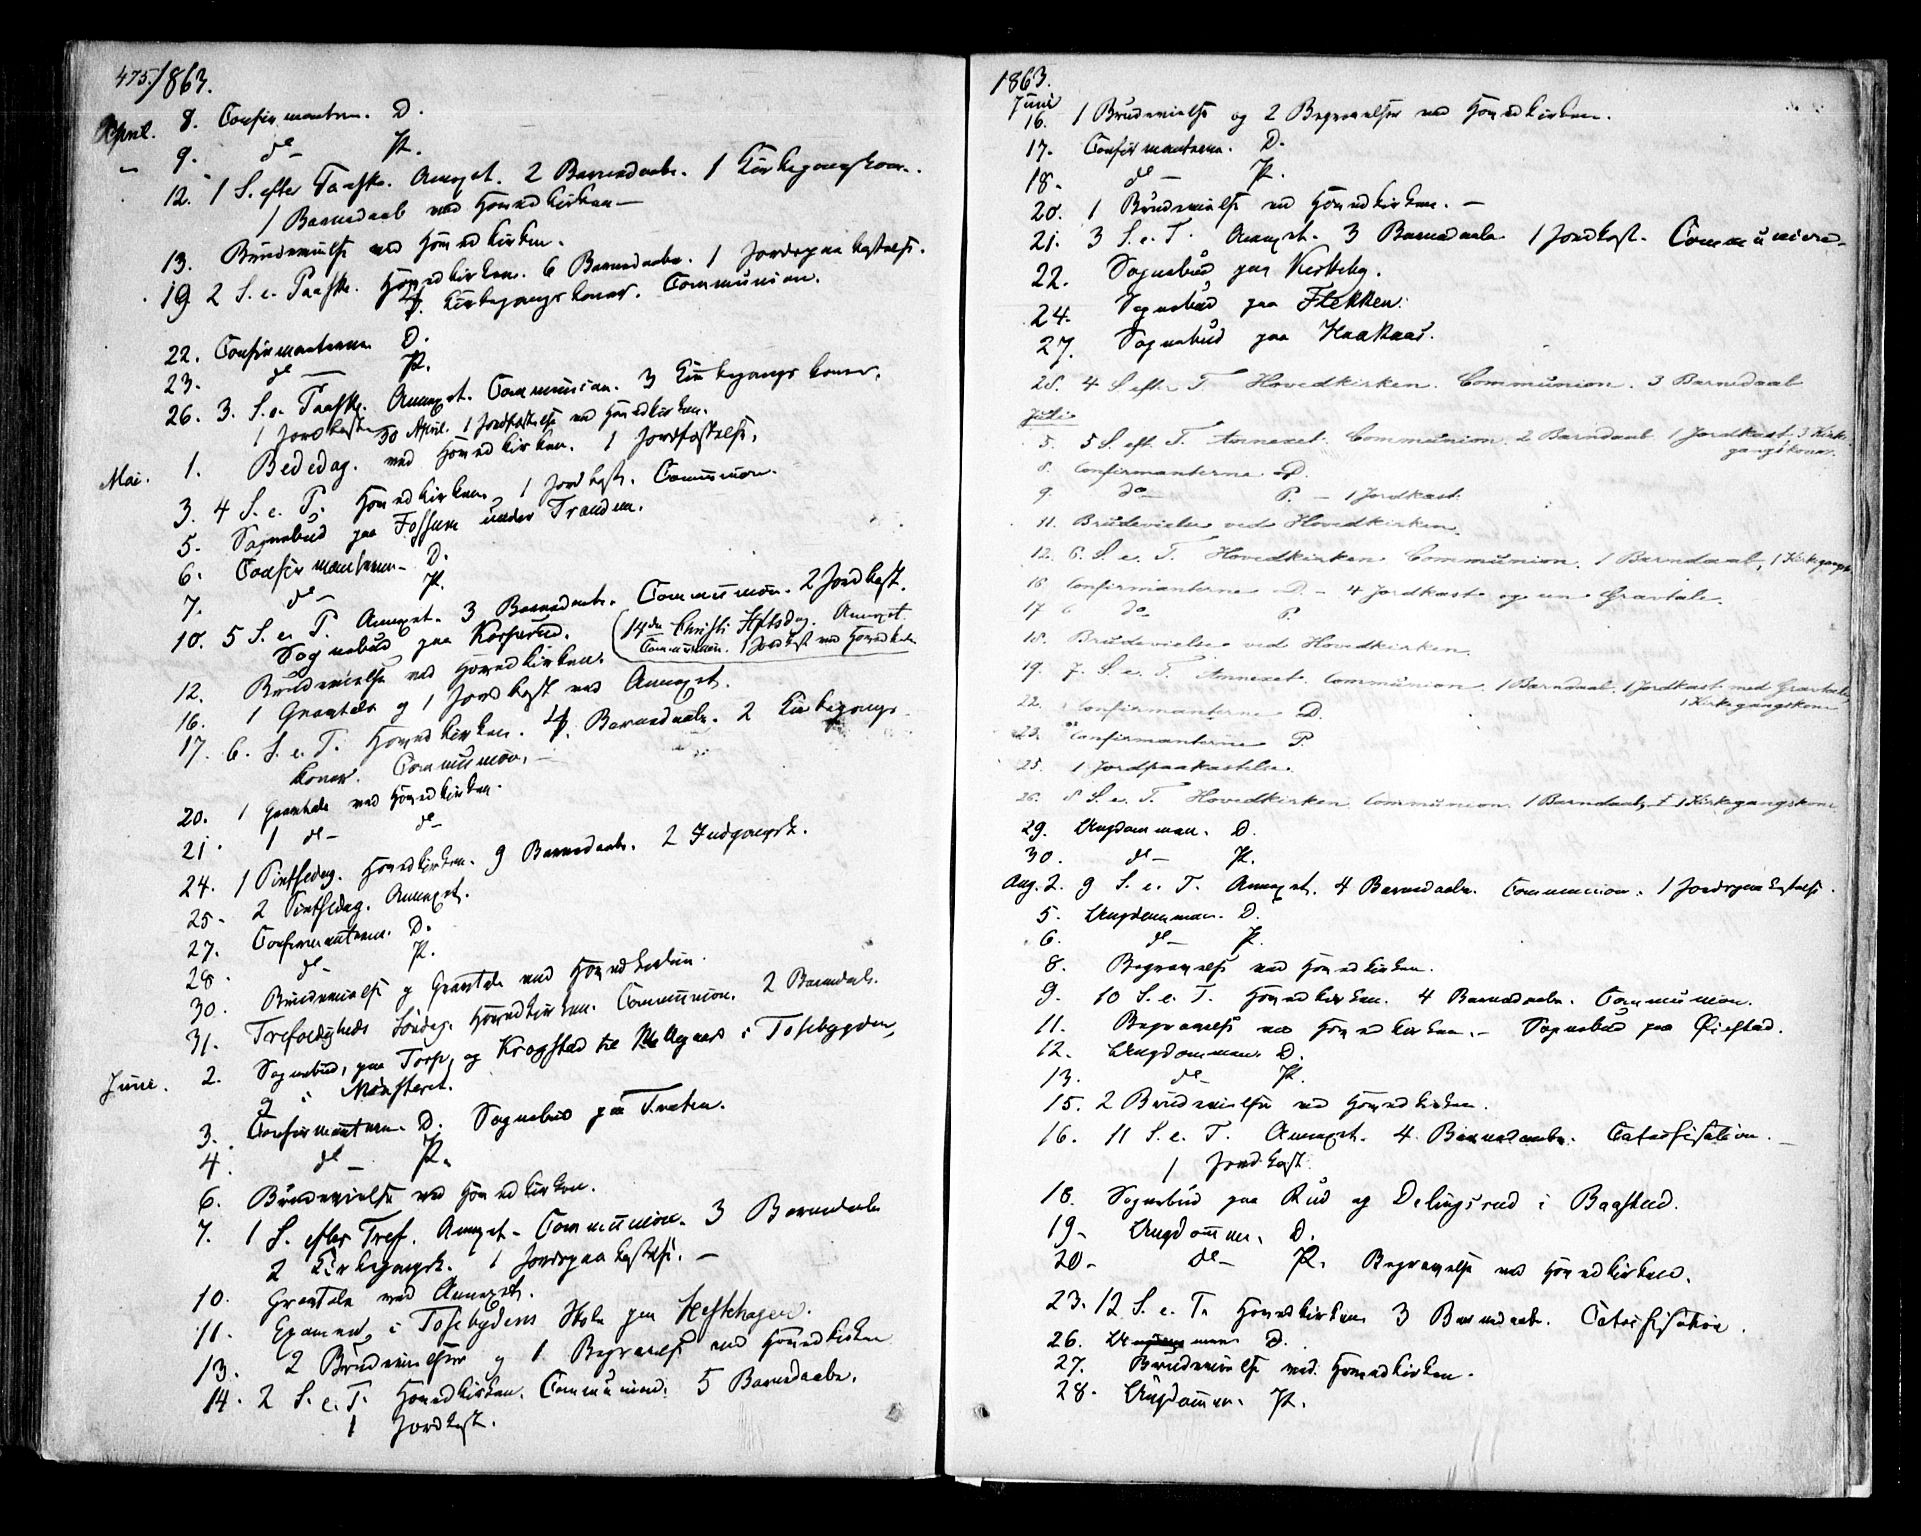 475. 1863.
April. 8. Confirmanterne. D.
" 9. do – P.
12. 1 S. efter Paaske. Annexet. 2 Barnedaabe. 1 Kirkegangskone.
1 Barnedaab ved Hovedkirken –
13. Brudevielse ved Hovedkirken.
19 2 S. e. Paaske. Hovedkirken. 6 Barnedaabe. 1 Jordspaakastelse.
4 Kirkegangskoner. Communion.
22. Confirmanterne D.
23. do — P.
26. 3. S. e. Paaske. Annexet. Communion. 3 Kirkegangskoner.
1 Jordkastelse 30 April. 1 Jordfæstelse ved Hovedkirken.
Mai. 1. Bededag. ved Hovedkirken. 1 Jordfæstelse.
3. 4 S. e. P. Hovedkirken 1 Jordkast. Communion.
5. Sognebud paa Fossum under Tranden.
6. Confirmanterne – D.
7. do – P.
10. 5 S. e. P. Annexet. 3 Barnedaabe. Communion. 2 Jordkast.
Sognebud paa Korperud. (14de Christi Hftsdag. Annexet.
Communion. 1 Jordkast ved Hovedkirken
12. Brudevielse ved Hovedkirken.
16. 1 Gravtale og 1 Jordkast ved Annexet.
17. 6. S. e. P. Hovedkirken. 4 Barnedaabe. 2 Kirkegangs
koner. Communion. –
20. 1 Gravtale ved Hovedkirken.
21. 1 do – do –
24. 1 Pintsedag. Hovedkirken. 9 Barnedaabe. 2 Indgangsk.
25. 2 Pintsedag. Annexet.
27. Confirmanterne. D.
28. do – P.
30. Brudevielse og Gravtale ved Hovedkirken.
31. Trefoldigheds Søndag. Hovedkirken. Communion. 2 Barnedaab.
June. 2. Sognebud, paa Torp, og Krogstad til i Tosebygden,
og i Mønsteret.
3. Confirmanterne. D. Sognebud paa Træten.
4. do – P.
6. Brudevielse ved Hovedkirken.
7. 1 S. efter Tref. Annexet – Communion. 3 Barnedaabe
2 Kirkegangsk. 1 Jordspaakastelse. –
10. Gravtale ved Annexet.
11. Examen i Tosebygdens Skole paa Hestehagen.
13. 2 Brudevielser og 1 Begravelse ved Hovedkirken
14. 2 S. e. T. Hovedkirken. Communion. 5 Barnedaabe.
1 Jordkast.
1863.
Juni
16. 1 Brudevielse og 2 Begravelser ved Hovedkirken.
17. Confirmanterne. D.
18. do – P.
20. 1 Brudevielse ved Hovedkirken. –
21. 3 S. e. T. Annexet. 3 Barnedaabe 1 Jordkast. Communion.
22. Sognebud paa Kirkeby.
24. Sognebud paa Flekken.
27. Sognebud paa Haakaas.
28. 4 S efter T. Hovedkirken. Communion. 3 Barnedaab
Juli
5. 5 S. eft. T. Annexet. Communion. 2 Barndaab 1 Jordkast, 3 Kirke-
gangskoner.
8. Confirmanterne D.
9. do – P. – 1 Jordkast.
11. Brudevielse ved Hovedkirken.
12. 6. S. e. T. Hovedkirken Communion. 1 Barndaab, 1 Kirkegangsk
16 Confirmanterne D. – 4 Jordkast og en Gravtale.
17 do P.
18. Brudevielse ved Hovedkirken.
19. 7. S. e. T. Annexet. Communion. 1 Barndaab. 1 Jordkast med Gravtale,
1 Kirkegangskone
22. Confirmanterne D.
23. Confirmanterne P.
25. 1 Jordpaakastelse.
26. 8 S. e. T. Hovedkirken Communion. 1 Barndaab, 1 Kirkegangskone
29. Ungdommen. D.
30. do – P.
Aug. 2. 9 S. e. T. Annexet. 4 Barnedaabe. Communion. 1 Jordspaakastelse.
5. Ungdommen. D.
6. do – P.
8. Begravelse ved Hovedkirken.
9. 10 S. e. T. Hovedkirken. 4 Barnedaabe. Communion.
11. Begravelse ved Hovedkirken. – Sognebud paa Øiestad.
12. Ungdommen D.
13. do – P.
15. 2 Brudevielser ved Hovedkirken.
16. 11 S. e. T. Annexet. 4 Barnedaabe. Catechisation. –
1 Jordkast.
18. Sognebud paa Rud og Delingsrud i Baastad.
19 – Ungdommen. D.
20 – do – P. Begravelse ved Hovedkirken.
23. 12 S. e. T. Hovedkirken 3 Barnedaabe. Catechisation.
26. Ungdommen D.
27. Brudevielse ved Hovedkirken.
28. Ungdommen. P.